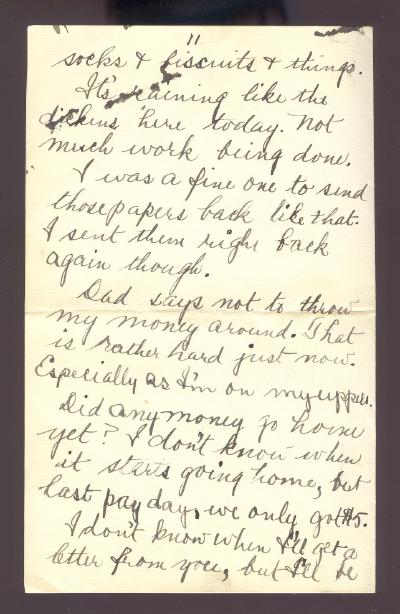 "
socks & biscuits & things.
It's raining like the
dickens here today. Not
much work being done.
I was a fine one to send
those papers back like that.
I sent them right back
again though.
Dad says not to throw
my money around. That
is rather hard just now.
Especially as I'm on my uppers.
Did any money go home
yet? I don't know when
it starts going home, but
last pay day, we only got $5.
I don't know when I'll get a
letter from you, but I'll be